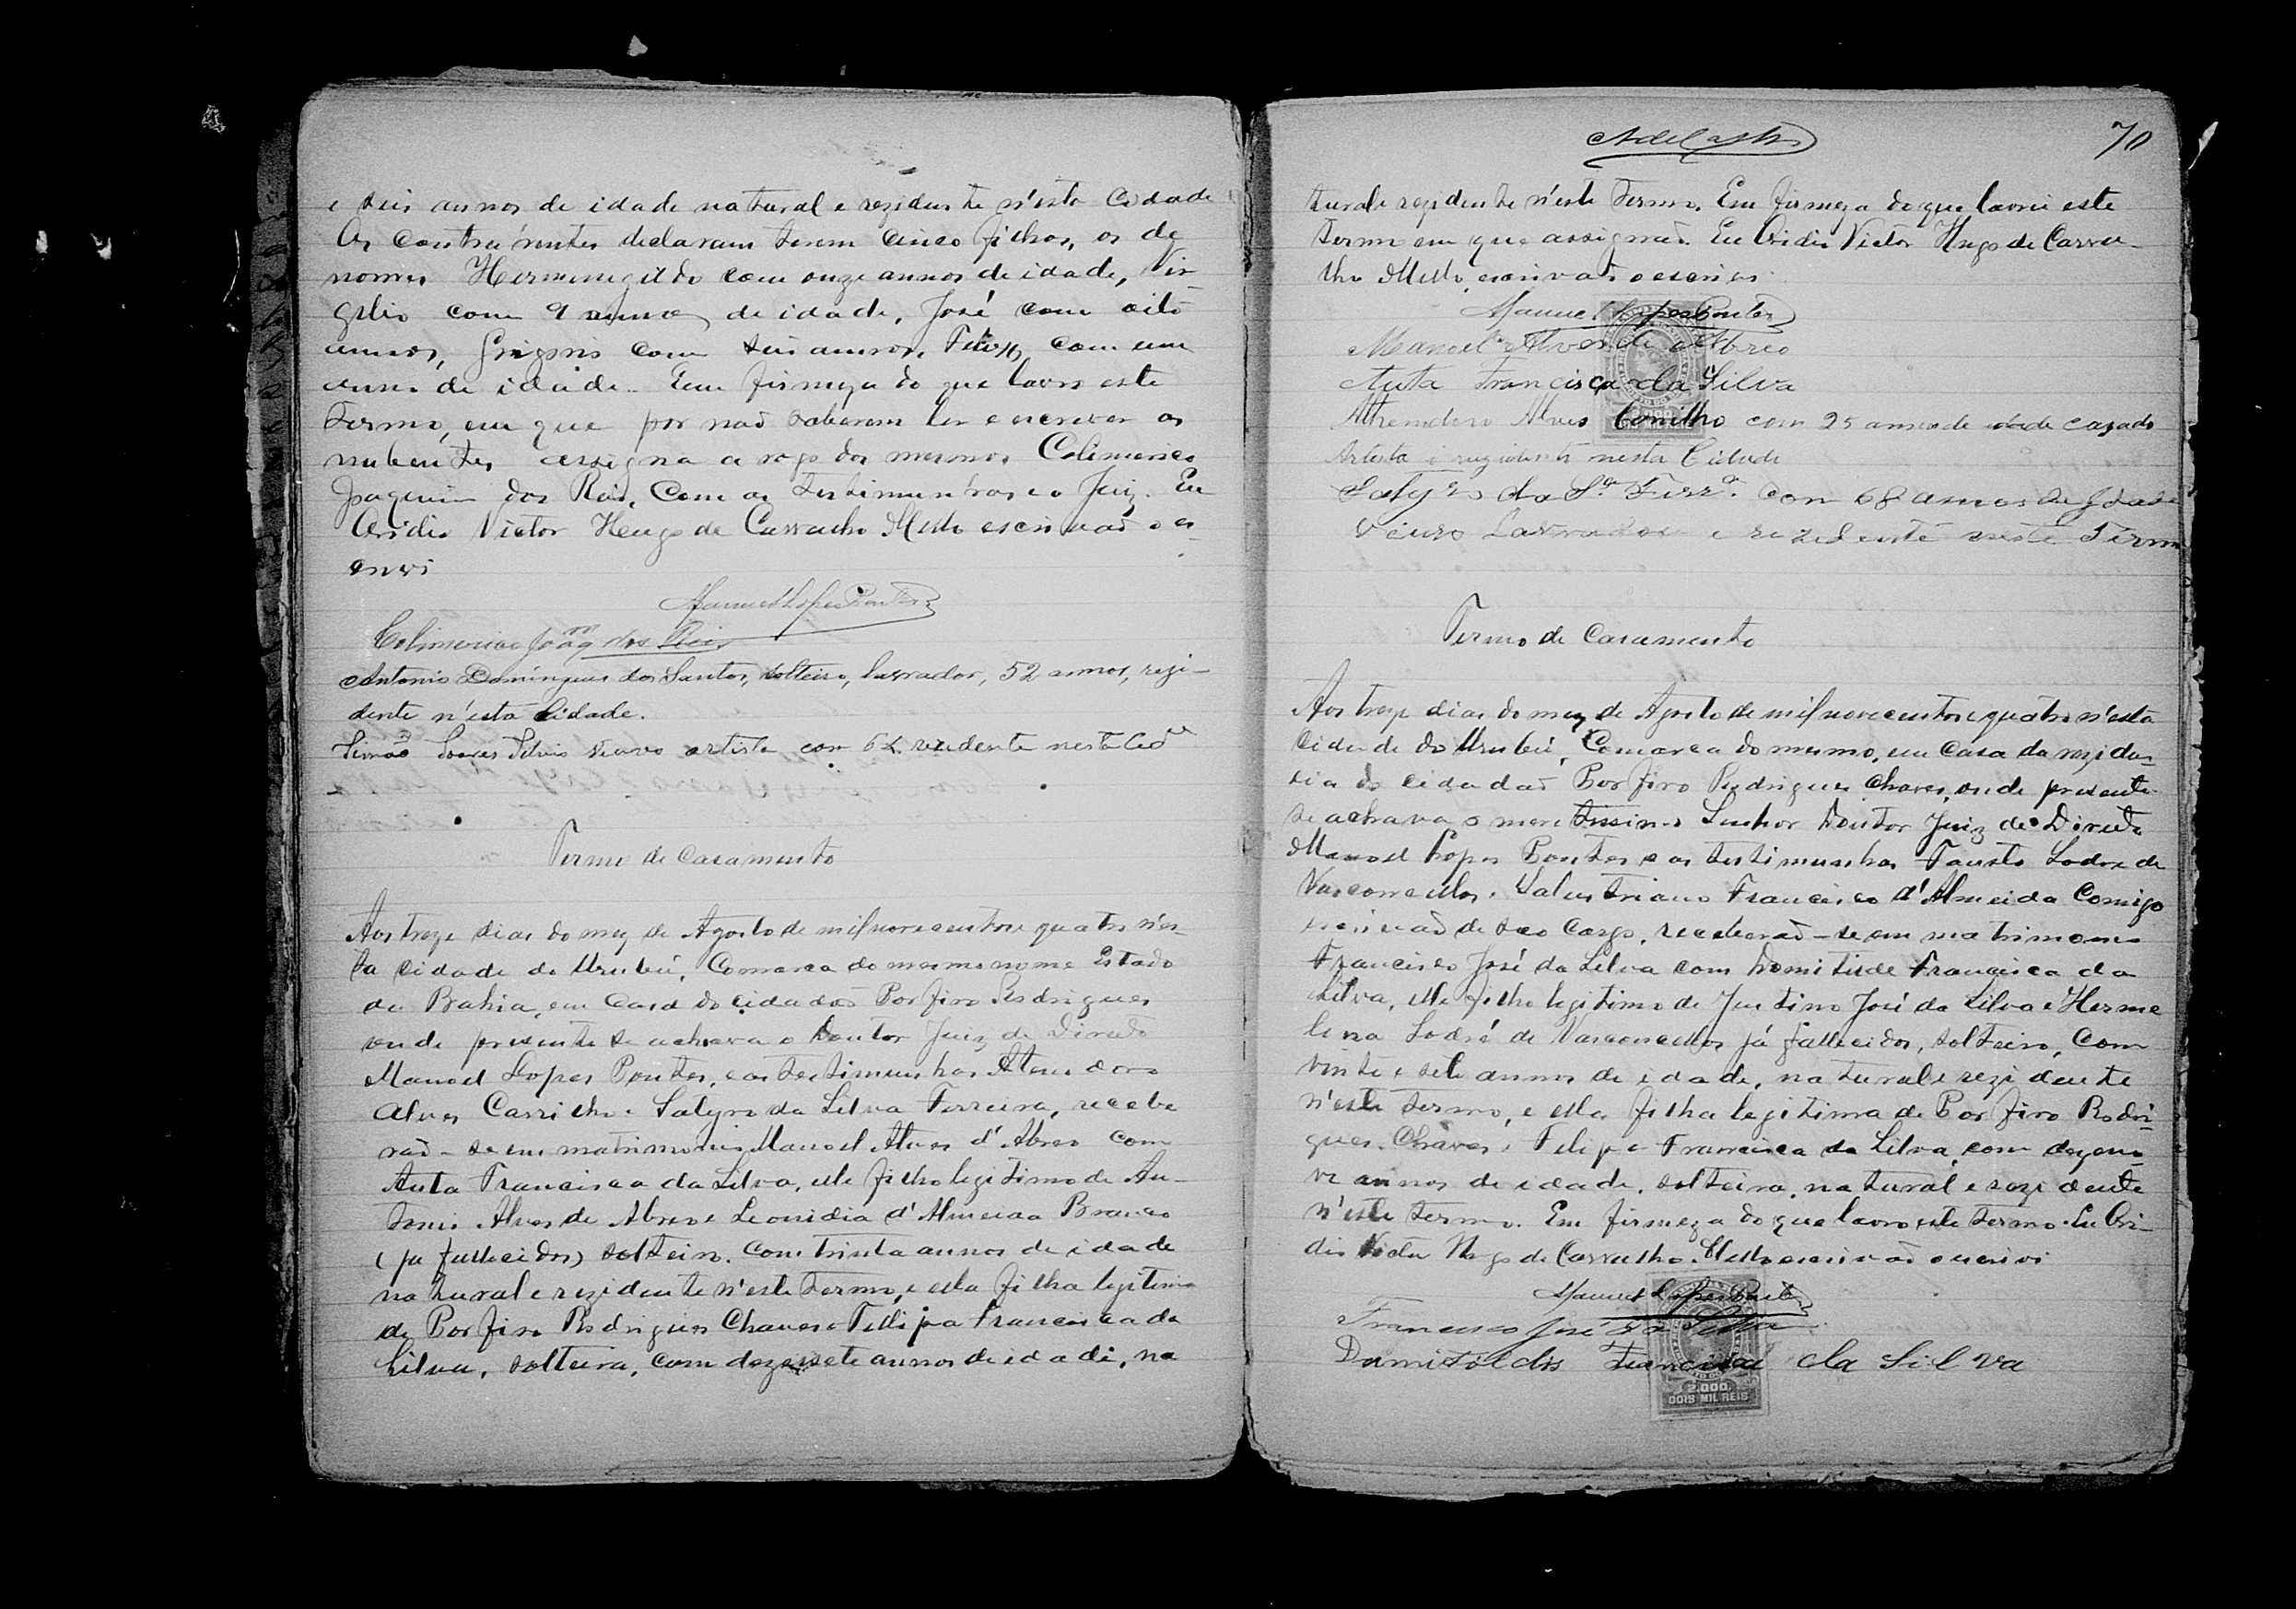 e seis annos de idade natural e rezidente n'esta Cidade
Os contrahentes declaram terem cinco filhos, os de
nomes Hermenegildo com onze annos de idade, Vir-
gilio com 9 annos de idade, José com oito
annos, com seis annos, com um
anno de idade. Em firmeza do que lavro este
termo, em que por não saberem ler e escrever os
nubentes assigna a rogo dos mesmos
Joaquim dos Reis, com as testimunhas e o Juiz. Eu
Victor Hugo de Carvalho Mello escrivão o es-
crevi
Manuel Lopes Pontes
Joaqm dos Reis
Antonio Domingues dos Santos, solteiro, lavrador, 52 annos, rezi-
dente n'esta Cidade.
Simão Soares viuvo artista com rezidente nesta Cide
Termo de Casamento
Aos treze dias do mez de Agosto de mil novecentos e quatro n'es-
ta Cidade do Urubú, Comarca do mesmo nome Estado
da Bahia, em casa do cidadão Porfiro Rodrigues
onde presente se achava o Doutor Juiz de Direito
Manoel Lopes Pontes, e as testimunhas
Alves Carrilho e Satyro da Silva Ferreira, recebe
rão-se em matrimonio Manoel Alves d'Abreo com
Auta Francisca da Silva, elle filho legitimo de An-
tonio Alves de Abreo e Leonidia d'Almeida Branco
(já fallecidos) solteiro, com trinta annos de idade
natural e rezidente n'este termo, e ella filha legitima
de Porfiro Rodrigues Chaves e Fellipa Francisca da
Silva, solteira, com dezesete annos de idade, na
70
tural e rezidente n'este termo. Em firmeza do que lavrei este
termo em que assignão. Eu Victor Hugo de Carva-
lho Mello, escrivão o escrevi
Manuel Lopes Pontes
Manoel Alves de Abreo
Auta Francisca da Silva
Alves Carrilho com 25 annos de idade cazado
Artista e rezidente nesta Cidade
Satyro da Sª Ferrª. com 68 annos de Idade
Viuvo Lavrador e rezidente neste Termo
Termo de Casamento
Aos treze dias do mez de Agosto de mil novecentos e quatro n'esta
Cidade do Urubú, Comarca do mesmo, em Casa da reziden-
cia do cidadão Porfiro Rodrigues Chaves, onde presente
se achava o meretissimo Senhor Doutor Juiz de Direito
Manoel Lopes Pontes e as testimunhas Fausto Lodré de
Vasconcellos e Salustriano Francisco d'Almeida Comigo
escrivão de seo cargo, receberão-se em matrimonio
Francisco José da Silva com Domitilde Francisca da
Silva, elle filho legitimo de Justino José da Silva e Herme
lina Lodré de Vasconcellos já fallecidos, solteiro, com
vinte e sete annos de idade, natural e rezidente
n'este termo, e ella filha legitima de Porfiro Rodri-
gues Chaves e Felipa Francisca da Silva, com dezeno-
ve annos de idade, solteira, natural e rezidente
n'este termo. Em firmeza do que lavro este termo. Eu
Victor Hugo de Carvalho Mello escrivão o escrevi
Manuel Lopes Pontes
Francisco José da Silva
Domitildis Francisca da Silva
2.000
DOIS MIL REIS